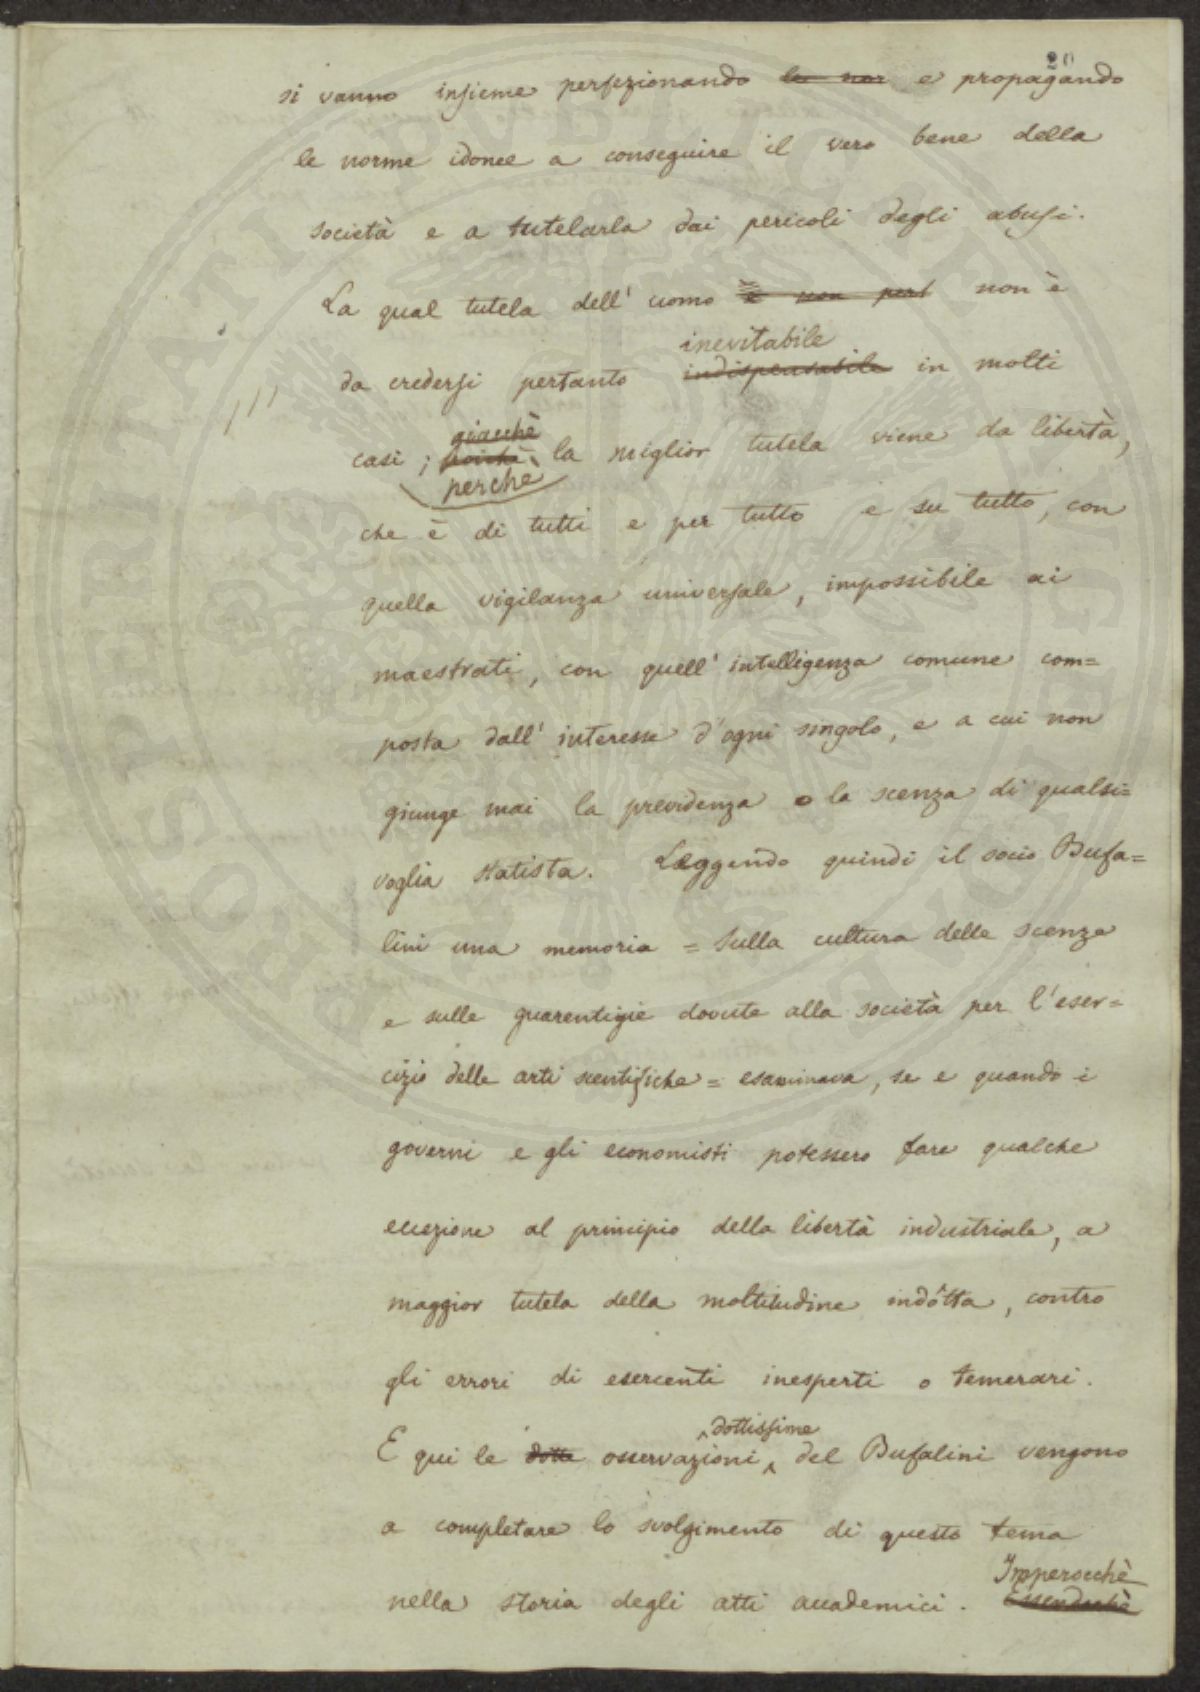 20
si vanno insieme perfezionando le nor e propagando
le norme idonee a conseguire il vero bene della
società e a tutelarla dai pericoli degli abusi.
La qual tutela dell' uomo è non pert non è
inevitabile
da credersi pertanto indispensabile in molti
giacchè
casi; poichè la miglior tutela viene da libertà,
perchè
che è di tutti e per tutto e su tutto, con
quella vigilanza universale, impossibile ai
maestrati, con quell' intelligenza comune com=
posta dall' interesse d'ogni singolo, e a cui non
giunge mai la previdenza o la scenza di qualsi=
voglia statista. Leggendo quindi il socio Bufa=
lini una memoria = Sulla cultura delle scenze
e sulle guarentigie dovute alla società per l'eser=
cizio delle arti scentifiche = esaminava, se e quando i
governi e gli economisti potessero fare qualche
eccezione al principio della libertà industriale, a
maggior tutela della moltitudine indòtta, contro
gli errori di esercenti inesperti o temerari.
dottissime
E qui le dotte osservazioni del Bufalini vengono
a completare lo svolgimento di questo tema
Imperocchè
nella storia degli atti accademici. Essendochè
PROSPERITATI PUBLICAE